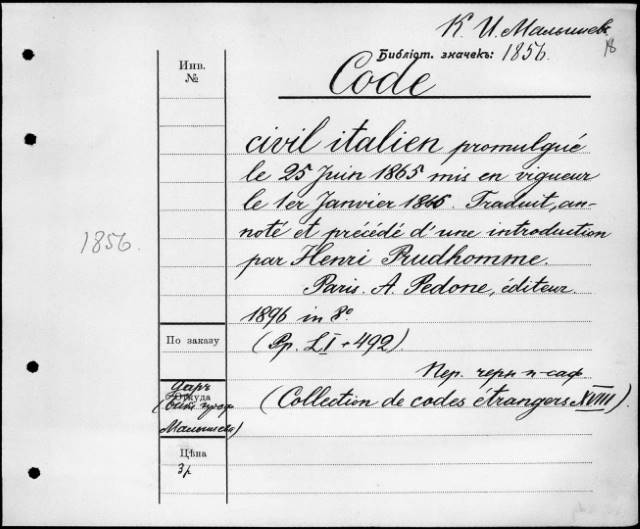 К. И. Малышев
18
Библіот. значекъ: 1856.
Инв.
№
Code
civil italien promulgué
le 25 Juin 1865 mis en vigueur
le 1er Janvier 1866. Traduit, an-
noté et précédé d'une introduction
1856.
par Henri Prudhomme.
Paris. A. Pedone, éditeur.
1896 in 8º
По заказу
(Pp. LI + 492).
Пер. черн п-саф
Даръ
Откуда
(Collection de codes étrangers XVIII)
(Библ проф
Малышева)
Цѣна
3р